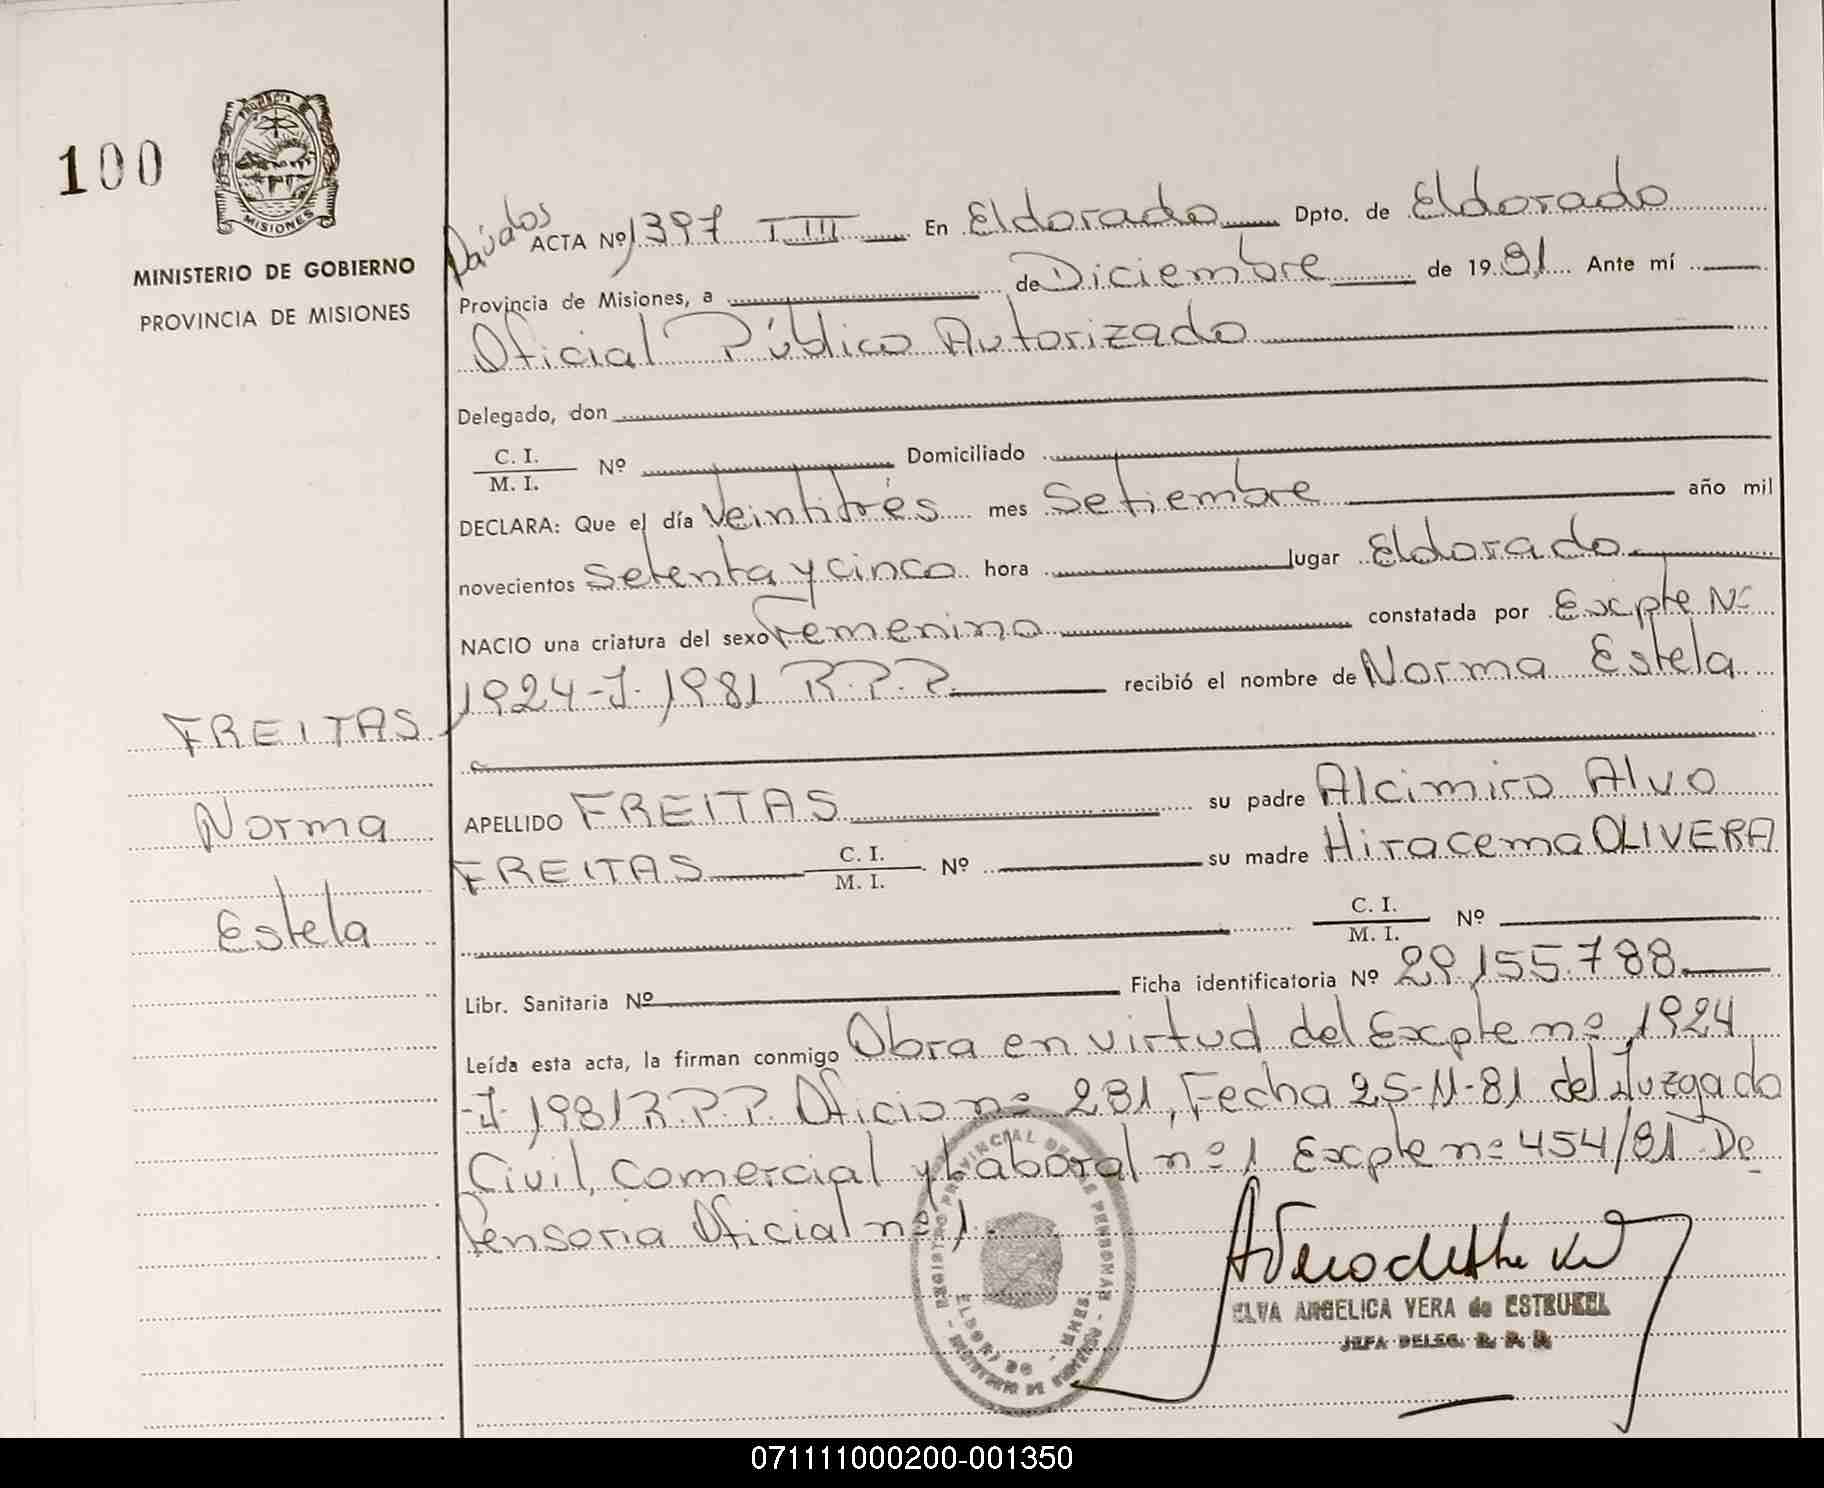 100
PROVINCIA DE
MISIONES
MINISTERIO DE GOBIERNO
PROVINCIA DE MISIONES
FREITAS
Norma
Estela
ACTA Nº 1397 T III En Eldorado Dpto. de Eldorado
Provincia de Misiones, a de Diciembre de 1981 Ante mí
Oficial Público Autorizado
Delegado, don
C. I.
M. I. Nº Domiciliado
DECLARA: Que el día Veintitrés mes Setiembre año mil
novecientos Setenta y cinco hora lugar Eldorado
NACIO una criatura del sexo Femenino constatada por Excpte Nº
1924-J-1981 R.P.P. recibió el nombre de Norma Estela
APELLIDO FREITAS su padre Alcimiro Alvo
FREITAS C. I. M. I. Nº su madre Hiracema OLIVERA
C. I. M. I. Nº
Libr. Sanitaria Nº Ficha identificatoria Nº 29.155.788
Leída esta acta, la firman conmigo Obra en virtud del Excpte nº 1924
-J-1981 R.P.P. Oficio nº 281, Fecha 25-11-81 del Juzgado
Civil, Comercial y Laboral nº 1 Excpte nº 454/81 De
fensoria Oficial nº 1.
REGISTRO PROVINCIAL DE LAS PERSONAS
ELDORADO - MNES.
MINISTERIO DE GOBIERNO
ELVA ANGELICA VERA de ESTRUKEL
JEFA DELEG. R. P. P.
071111000200-001350